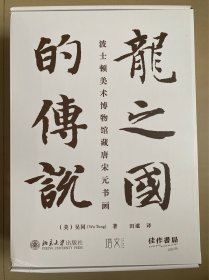 龍之國
的傳說
波士顿美术博物馆藏唐宋元书画
（美）吴同（Wu Tung） 著 田彧 译
北京大学出版社
培文
佳作書局